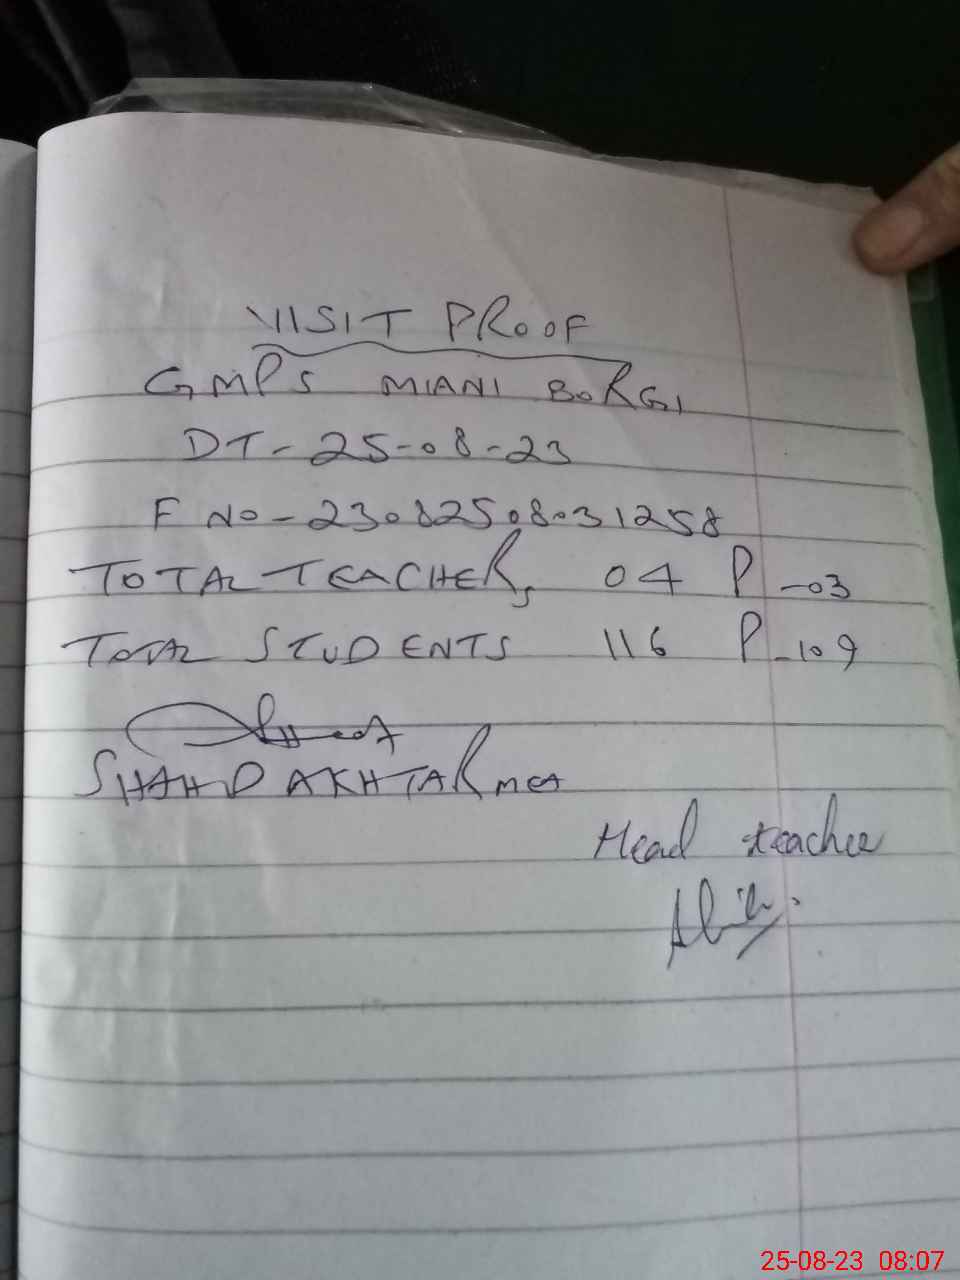 VISIT PROOF
GMPS MIANI BORGI
DT- 25-08-23
F NO- 23082508031258
TOTAL TEACHERS 04 P -03
TOTAL STUDENTS 116 P -109
SHAHD AKHTAR MEA
Head teacher
25-08-23 08:07